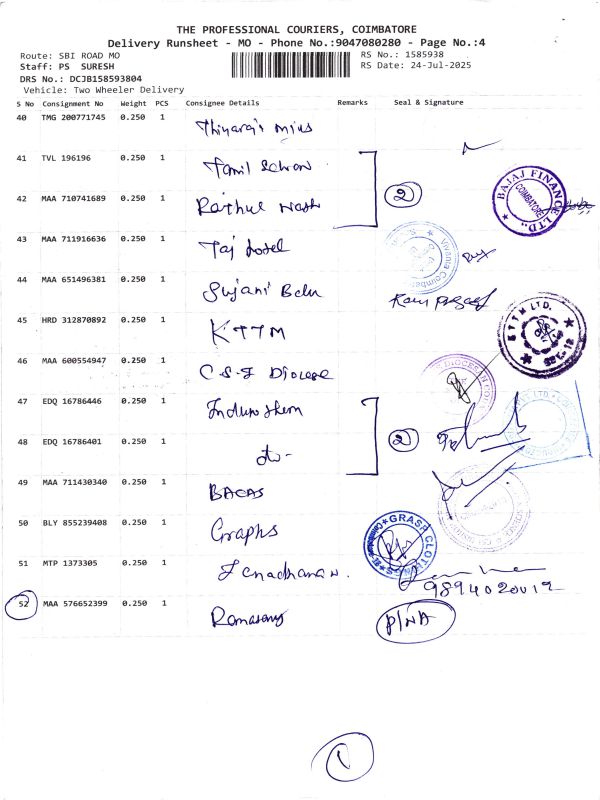 THE PROFESSIONAL COURIERS, COIMBATORE
Delivery Runsheet - MO - Phone No.:9047080280 - Page No.:4
Route: SBI ROAD MO
RS No.: 1585938
Staff: PS SURESH
RS Date: 24-Jul-2025
DRS No.: DCJB158593804
Vehicle: Two Wheeler Delivery
S No Consignment No Weight PCS Consignee Details Remarks Seal & Signature
40 TMG 200771745 0.250 1
41 TVL 196196 0.250 1 Tamil
42 MAA 710741689 0.250 1 Rathul
2
BAJAJ FINANCE LTD.,
COIMBATORE
43 MAA 711916636 0.250 1 Taj hotel
44 MAA 651496381 0.250 1 Sujani
45 HRD 312870892 0.250 1 KTTM
46 MAA 600554947 0.250 1 C.S.I Diocese
47 EDQ 16786446 0.250 1
48 EDQ 16786401 0.250 1 do-
2
49 MAA 711430340 0.250 1 BACAS
50 BLY 855239408 0.250 1 Graphs
51 MTP 1373305 0.250 1 Janadhanan.
9894020012
52 MAA 576652399 0.250 1 Ramasamy D/NA
1